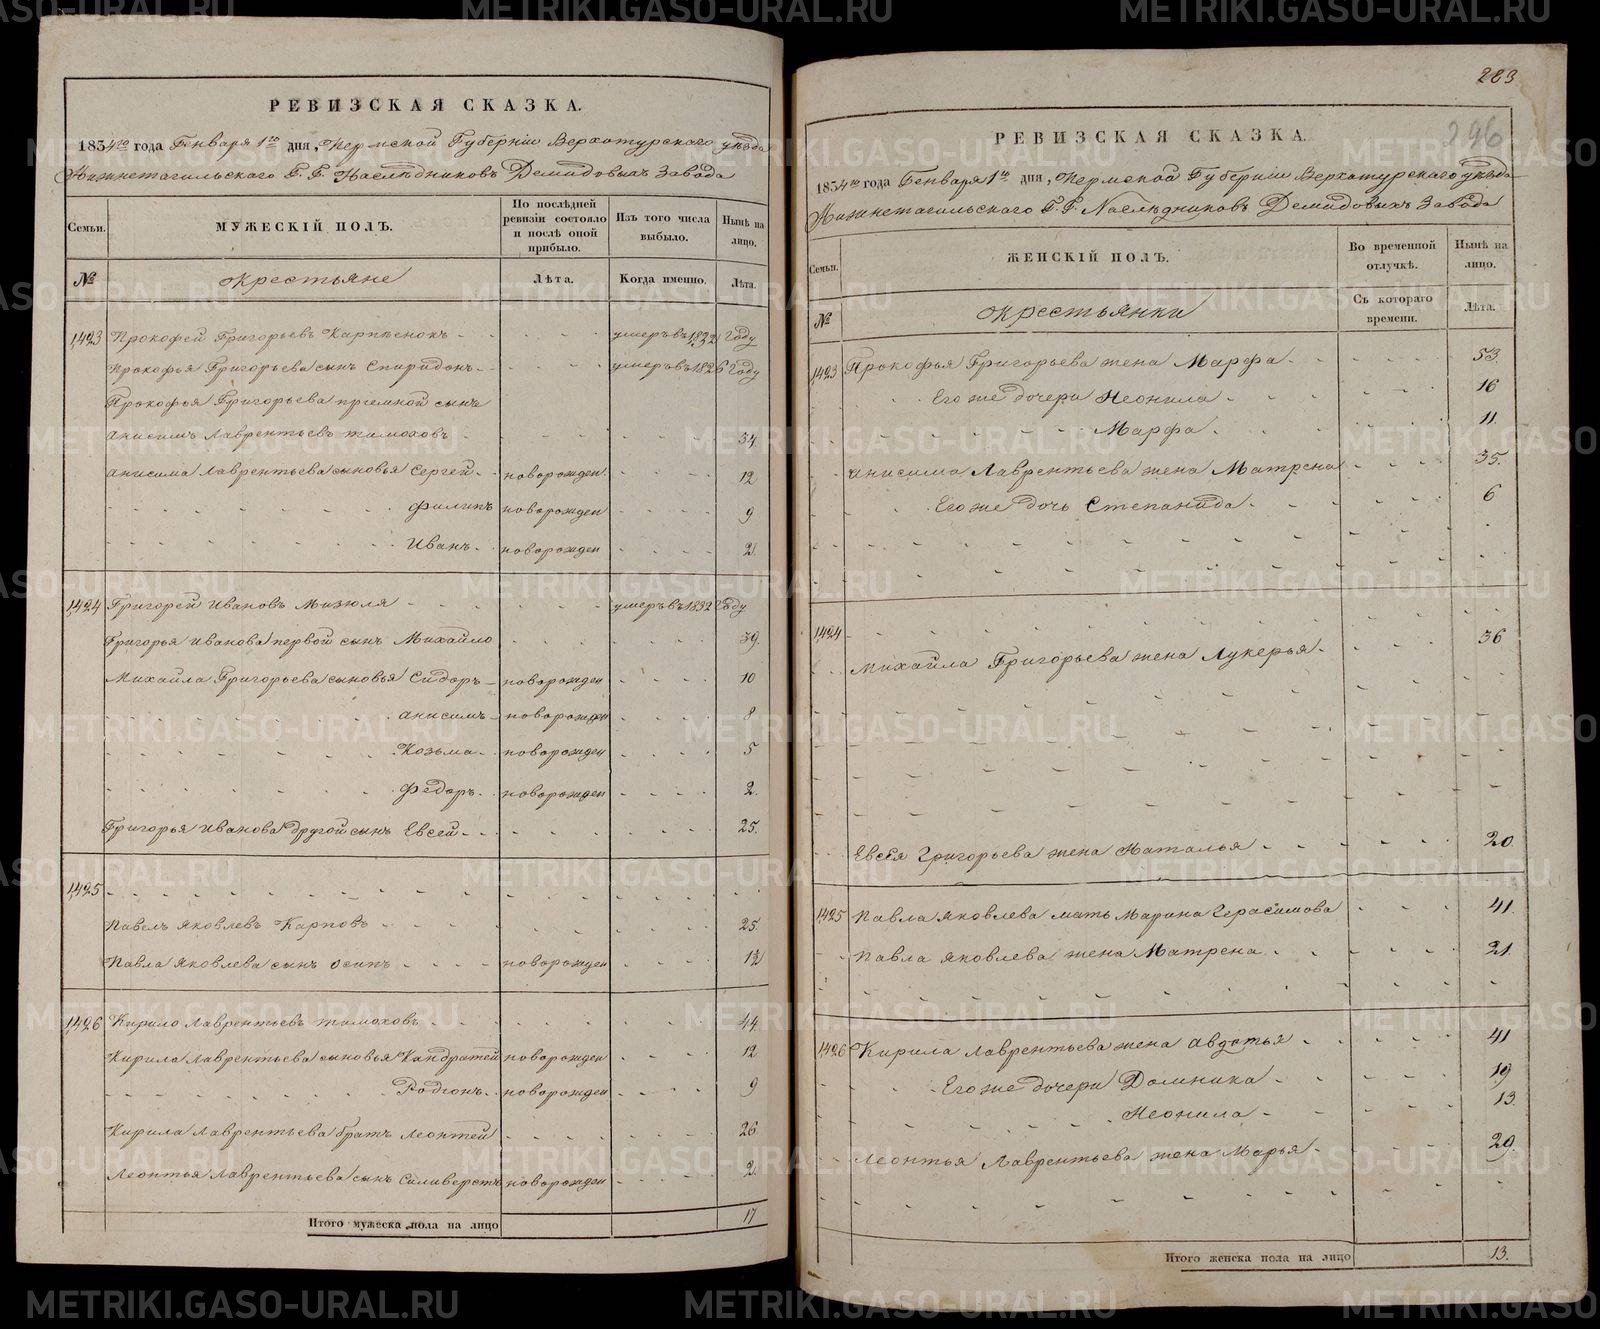 РЕВИЗСКАЯ СКАЗКА.
1834го года Генваря 1го дня, Пермской Губерніи Верхотурскаго уѣзда
Нижнетагильскаго Г. Г. Наслѣдниковъ Демидовыхъ Завода
Семьи. МУЖЕСКІЙ ПОЛЪ. По послѣдней ревизіи состояло и послѣ оной прибыло. Изъ того числа выбыло. Нынѣ на лицо.
№ Крестьяне Лѣта. Когда именно. Лѣта.
1423 Прокофей Григорьевъ Карпѣнокъ умеръ въ 1832 году
Прокофья Григорьева сынъ Спиридонъ умеръ въ 1826 году
Прокофья Григорьева приемной сынъ
Анисимъ Лаврентьевъ 34
Анисима Лаврентьева сыновья Сергей новорожден. 12
Филипъ новорожден 9
Иванъ новорожден 2
1424 Григорей Ивановъ Мизюля умеръ въ 1832 году
Григорья Иванова первой сынъ Михайло 39.
Михайла Григорьева сыновья Сидоръ новорожден 10
Анисимъ новорожден 8
Козьма новорожден 5
Федоръ новорожден 2.
Григорья Иванова другой сынъ Евсей 25.
1425
Павелъ Яковлевъ Карповъ 25.
Павла Яковлева сынъ Осипъ новорожден
1426 Кирило Лаврентьевъ 44.
Кирила Лаврентьева сыновья Кандратей новорожден 12
Родіонъ новорожден 9
Кирила Лаврентьева братъ Леонтей 26
Леонтья Лаврентьева сынъ Силиверстъ новорожден 2.
Итого мужеска пола на лицо 17
283
296
РЕВИЗСКАЯ СКАЗКА.
1834го года Генваря 1го дня, Пермской Губерніи Верхотурскаго уѣзда
Нижнетагильскаго Г. Г. Наслѣдниковъ Демидовыхъ Завода
Семьи. ЖЕНСКІЙ ПОЛЪ. Во временной отлучкѣ. Нынѣ на лицо.
№ Крестьянки Съ котораго времени. Лѣта.
1423 Прокофья Григорьева жена Марфа 53.
Его же дочери Неонила 16
Марфа 11.
Анисима Лаврентьева жена Матрена 35.
Его же дочь Степанида 6
1424
Михайла Григорьева жена Лукерья 36
Евсея Григорьева жена Наталья 20.
1425 Павла Яковлева мать Марина Герасимова 41.
Павла Яковлева жена Матрена 21.
1426 Кирила Лаврентьева жена Авдотья 41
Его же дочери Домника 19
Неонила 13.
Леонтья Лаврентьева жена Марья 29.
Итого женска пола на лицо 13.
METRIKI.GASO-URAL.RU